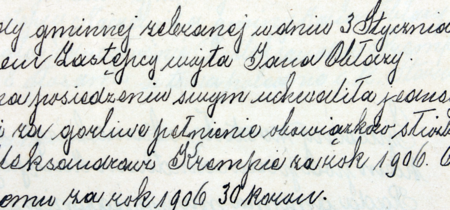 dy gminnej zebranej w dniu 3 Stycznia
em Zastępcy wójta Jana Obłazy.
na posiedzeniu swym uchwaliła jedno
i za gorliwe pełnienie obowiązków stróż
leksandrowi Krempie za rok 1906.
emu za rok 1906 30 koron.